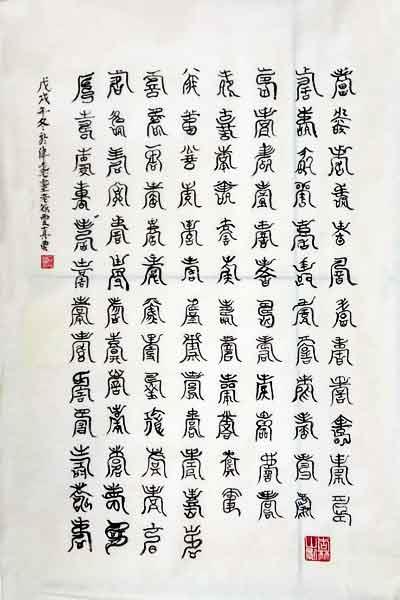 壽壽壽壽壽壽壽壽壽壽壽壽
壽壽壽壽壽壽壽壽壽壽壽壽
壽壽壽壽壽壽壽壽壽壽壽壽
壽壽壽壽壽壽壽壽壽壽壽壽
壽壽壽壽壽壽壽壽壽壽壽壽壽
壽壽壽壽壽壽壽壽壽壽壽壽壽
壽壽壽壽壽壽壽壽壽壽壽壽壽
壽壽壽壽壽壽壽壽壽壽壽壽壽
戊戌年冬於津